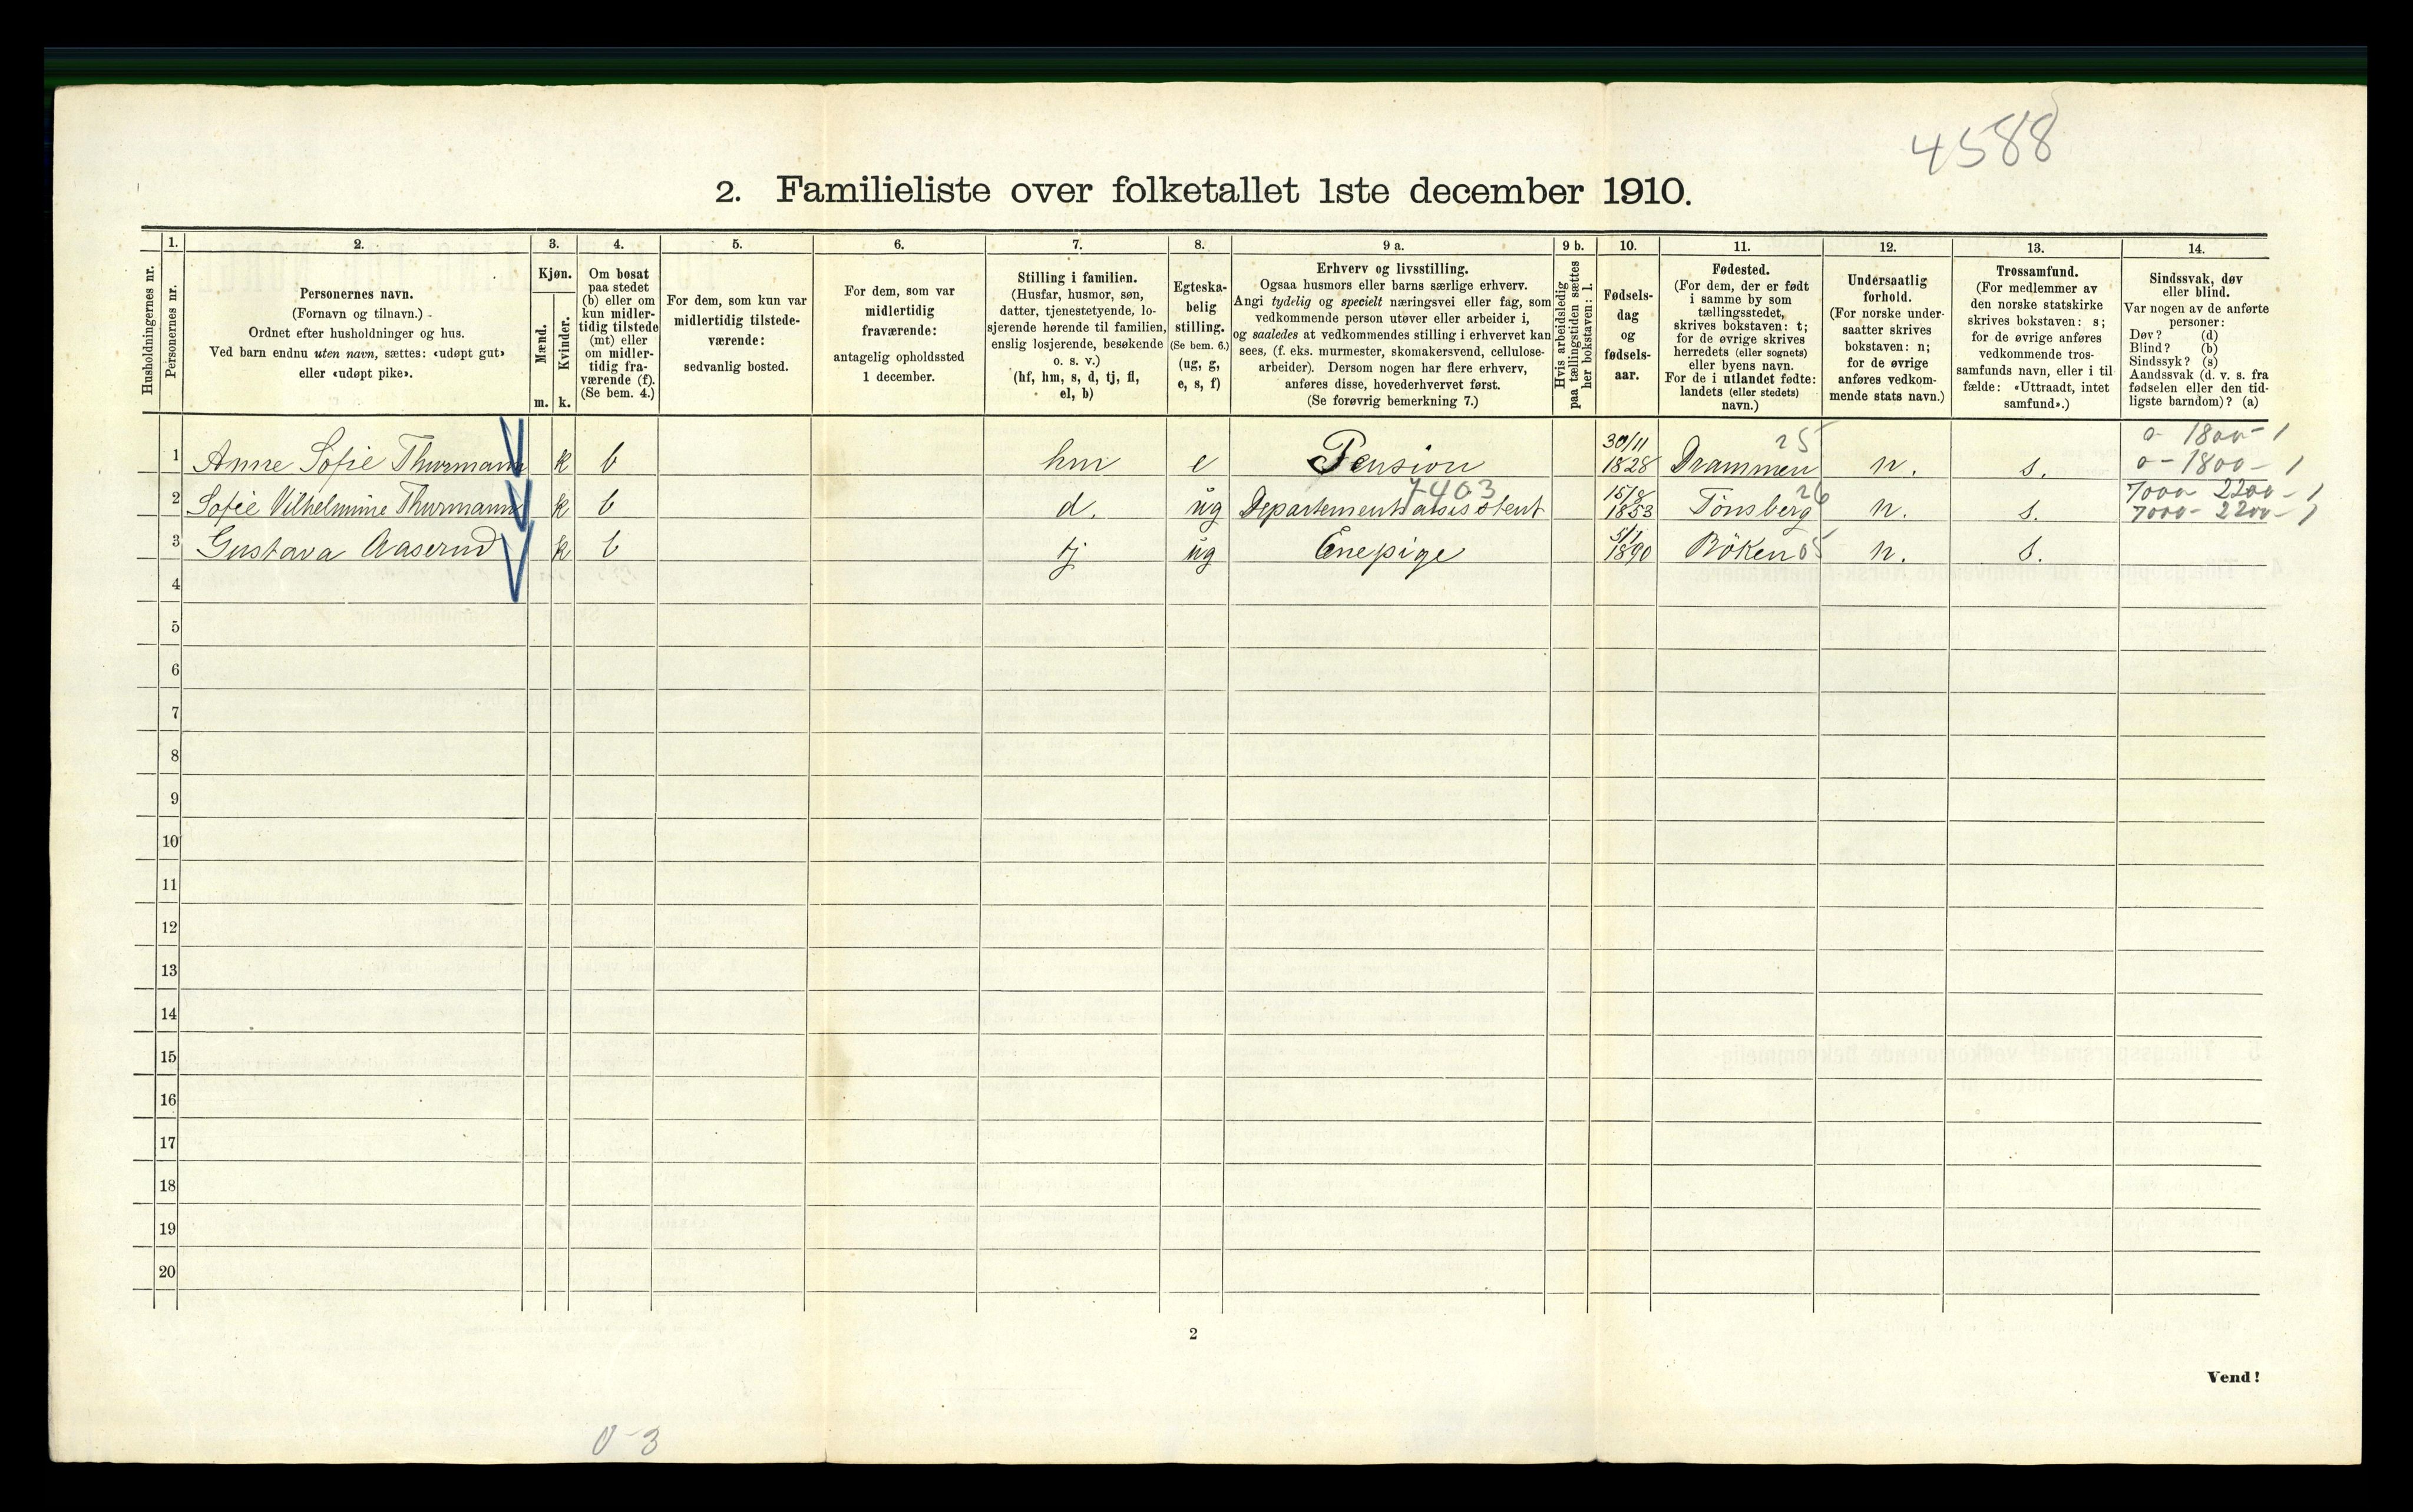 4588
2. Familieliste over folketallet 1ste december 1910.
Husholdningernes nr.
1.
Personernes nr.
2.
Personernes navn.
(Fornavn og tilnavn.)
Ordnet efter husholdninger og hus.
Ved barn endnu uten navn, sættes: «udøpt gut»
eller «udøpt pike».
3.
Kjøn.
Mænd.
m.
Kvinder.
k.
4.
Om bosat
paa stedet
(b) eller om
kun midler-
tidig tilstede
(mt) eller
om midler-
tidig fra-
værende (f).
(Se bem. 4.)
5.
For dem, som kun var
midlertidig tilstede-
værende:
sedvanlig bosted.
6.
For dem, som var
midlertidig
fraværende:
antagelig opholdssted
1 december.
7.
Stilling i familien.
(Husfar, husmor, søn,
datter, tjenestetyende, lo-
sjerende hørende til familien,
enslig losjerende, besøkende
o. s. v.)
(hf, hm, s, d, tj, fl,
el, b)
8.
Egteska-
belig
stilling.
(Se bem. 6.)
(ug, g,
e, s, f)
9 a.
Erhverv og livsstilling.
Ogsaa husmors eller barns særlige erhverv.
Angi tydelig og specielt næringsvei eller fag, som
vedkommende person utøver eller arbeider i,
og saaledes at vedkommendes stilling i erhvervet kan
sees, (f. eks. murmester, skomakersvend, cellulose-
arbeider). Dersom nogen har flere erhverv,
anføres disse, hovederhvervet først.
(Se forøvrig bemerkning 7.)
9 b.
Hvis arbeidsledig
paa tællingstiden sættes
her bokstaven: l.
10.
Fødsels-
dag
og
fødsels-
aar.
11.
Fødested.
(For dem, der er født
i samme by som
tællingsstedet,
skrives bokstaven: t;
for de øvrige skrives
herredets (eller sognets)
eller byens navn.
For de i utlandet fødte:
landets (eller stedets)
navn.)
12.
Undersaatlig
forhold.
(For norske under-
saatter skrives
bokstaven: n;
for de øvrige
anføres vedkom-
mende stats navn.)
13.
Trossamfund.
(For medlemmer av
den norske statskirke
skrives bokstaven: s;
for de øvrige anføres
vedkommende tros-
samfunds navn, eller i til-
fælde: «Uttraadt, intet
samfund».)
14.
Sindssvak, døv
eller blind.
Var nogen av de anførte
personer:
Døv? (d)
Blind? (b)
Sindssyk? (s)
Aandssvak (d. v. s. fra
fødselen eller den tid-
ligste barndom)? (a)
25 0- 1800- 1
1 Anne Sofie Thurmann k b hm e Pension 30/11 1828 Drammen n. s. 0- 1800- 1
7403 26 7000- 2200- 1
2 Sofie Vilhelmine Thurmann k b d. ug Departementsassistent 1853 Tønsberg n. s. 7000- 2200- 1
3 Gustava Aaserud k b tj ug Enepige 1890 Röken 05 n. s.
4
5
6
7
8
9
10
11
12
13
14
15
16
17
18
19
20
2
Vend!
0-3